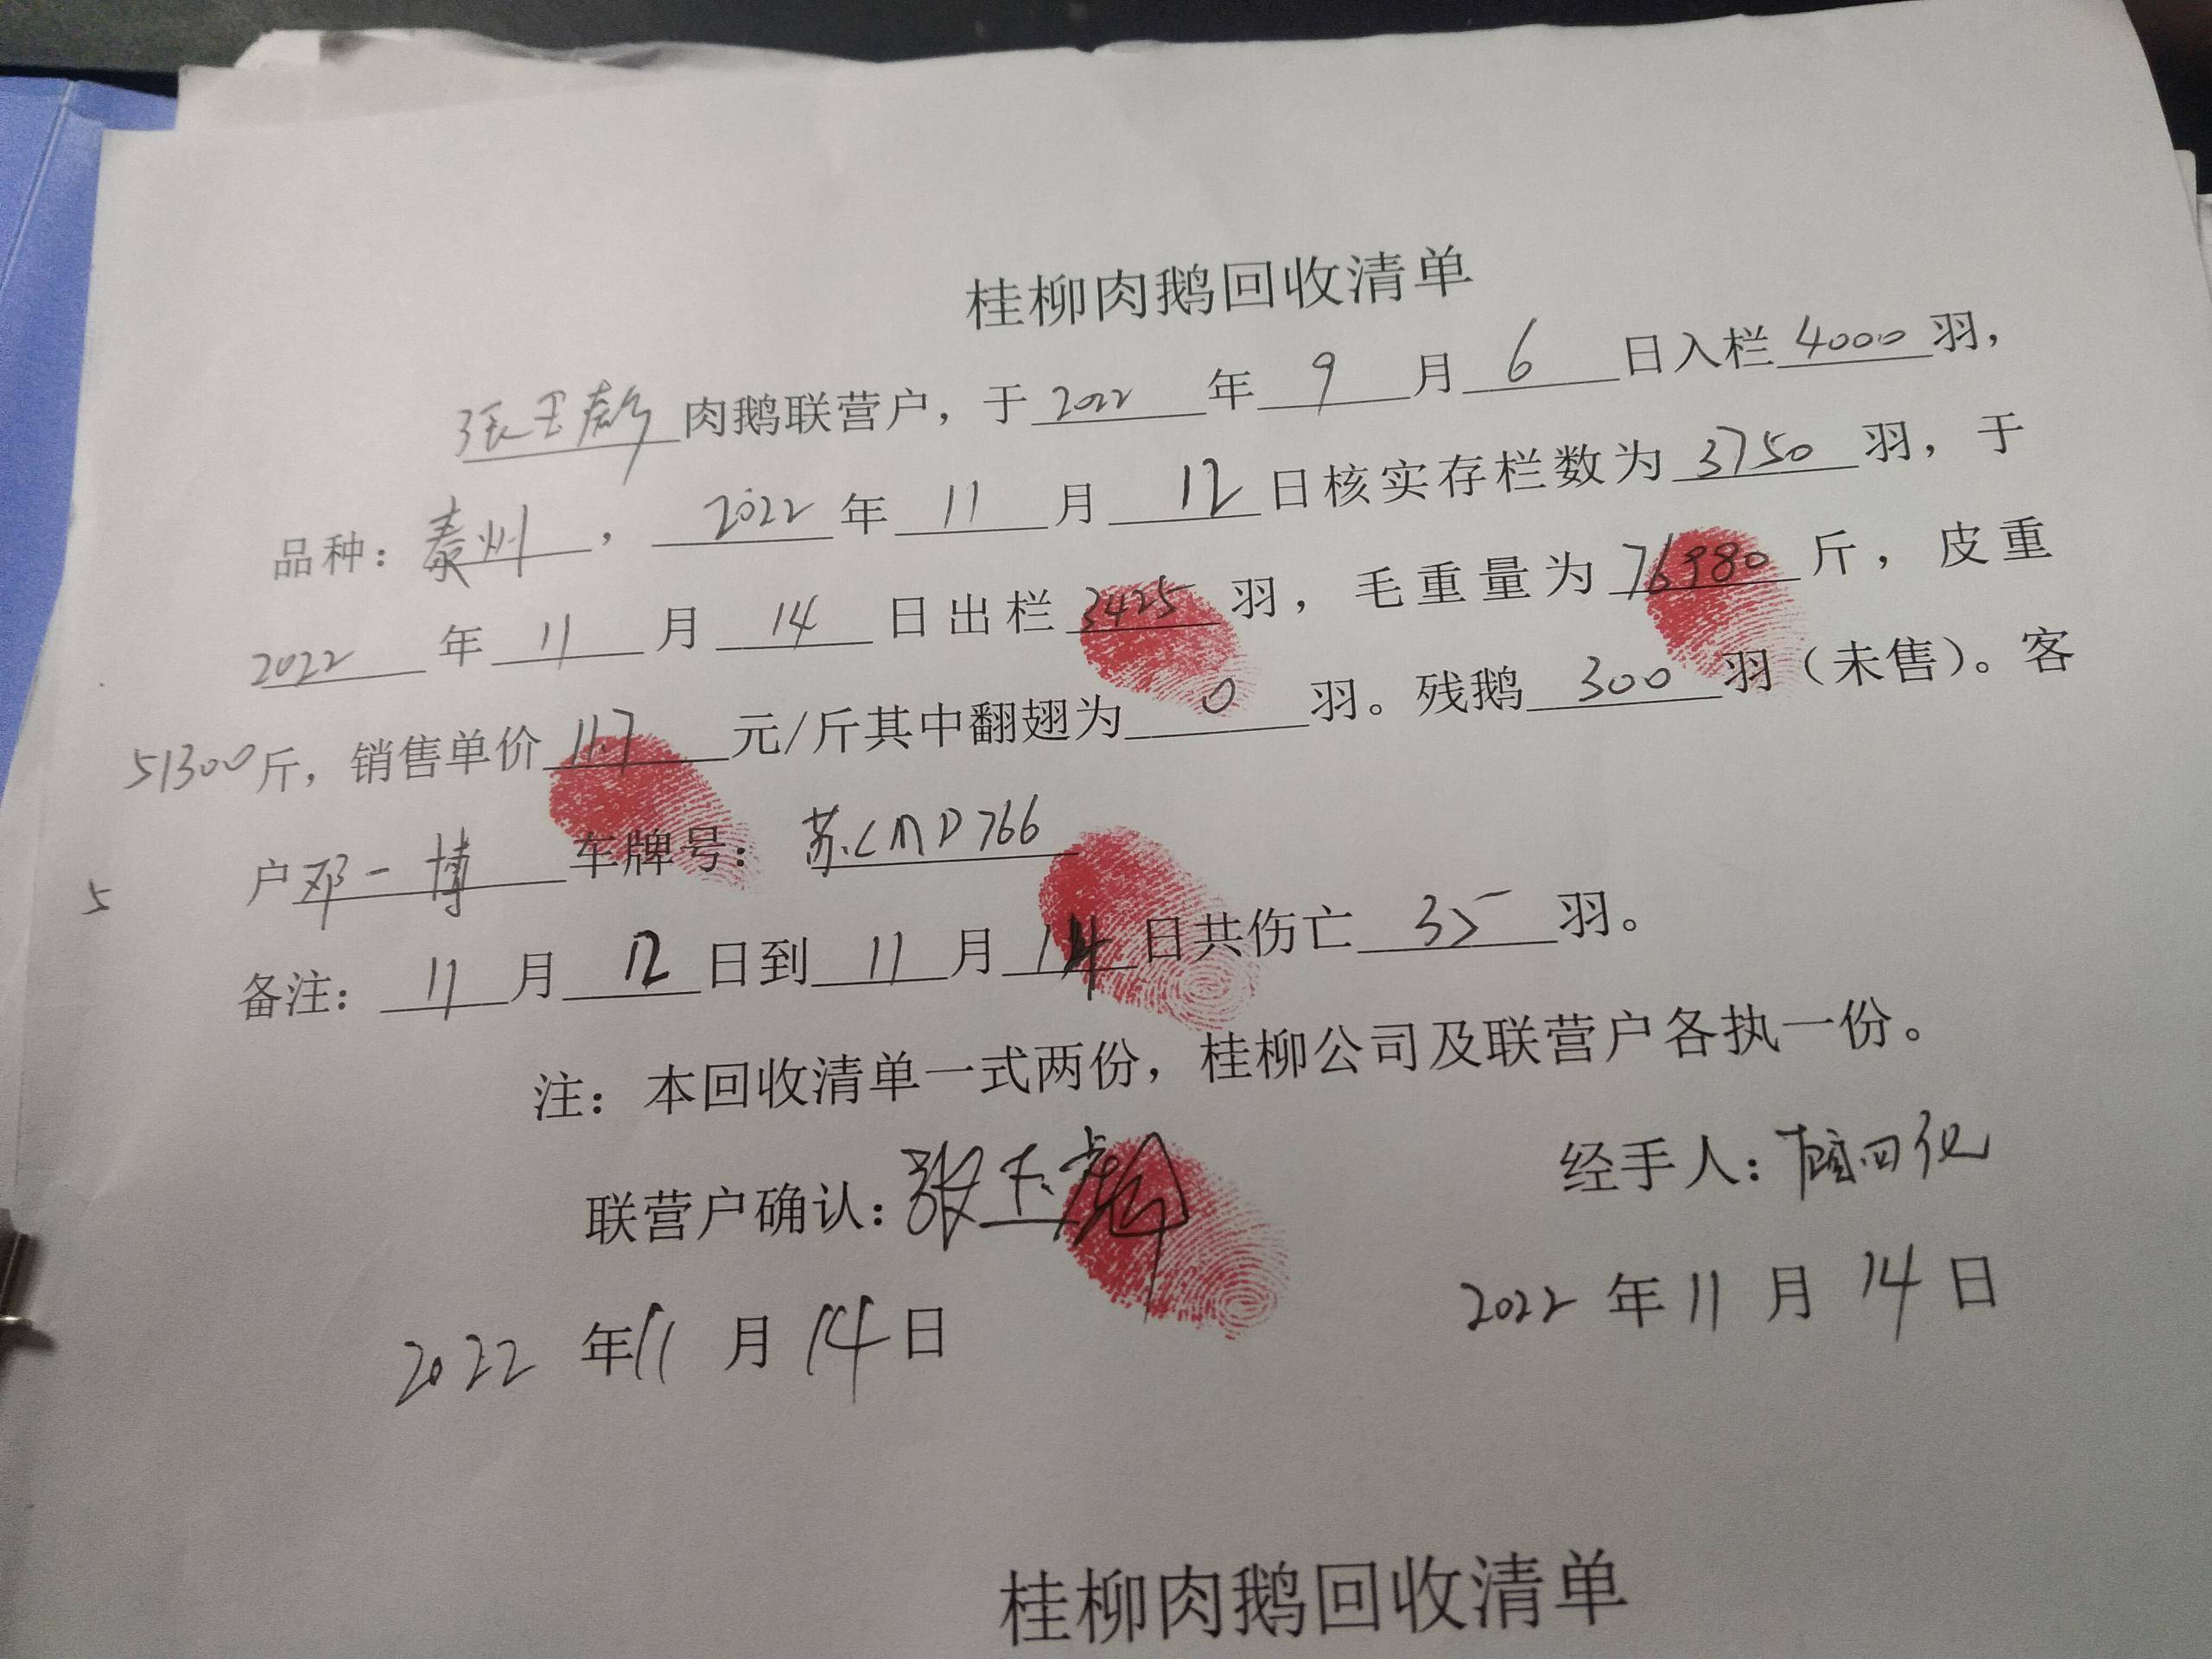 桂柳肉鹅回收清单
张玉彪肉鹅联营户，于2022年9月6日入栏4000羽，
品种：泰州，2022年11月12日核实存栏数为3750羽，于
2022年11月14日出栏3425羽，毛重量为76980斤，皮重
51300斤，销售单价11.7元/斤其中翻翅为0羽。残鹅300羽（未售）。客
户邓一博车牌号：苏CMD766
5
备注：11月12日到11月14日共伤亡35羽。
注：本回收清单一式两份，桂柳公司及联营户各执一份。
联营户确认：张玉彪 经手人：
2022年11月14日 2022年11月14日
桂柳肉鹅回收清单